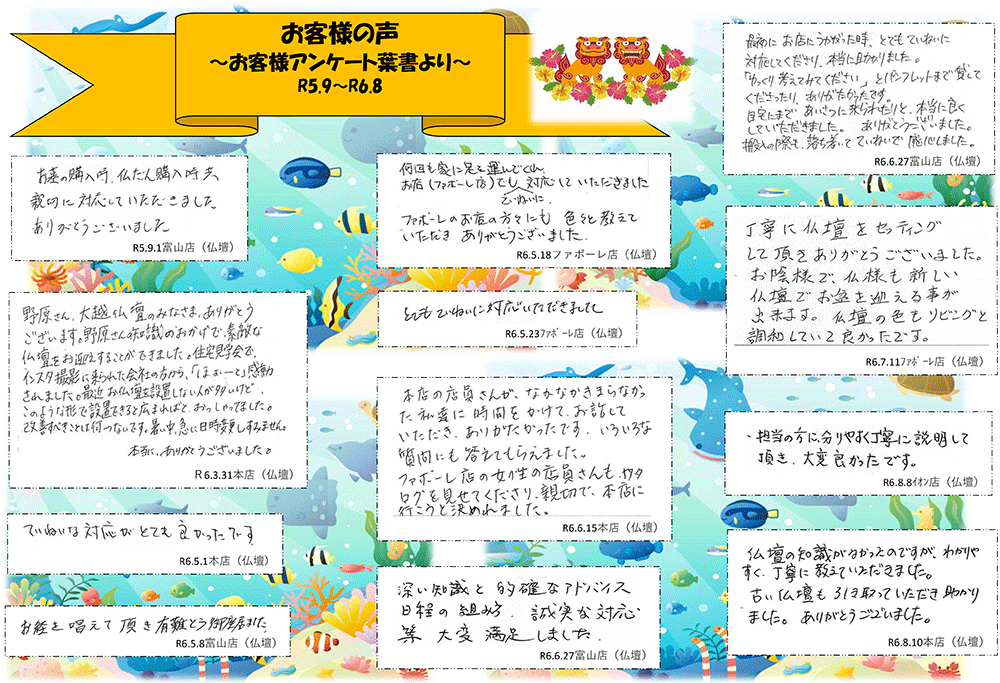 お客様の声
～お客様アンケート葉書より～
R5.9～R6.8
お墓の購入時、仏だん購入時共、
親切に対応していただきました
ありがとうございました
R5.9.1富山店（仏壇）
野原さん、大越仏壇のみなさま、ありがとう
ございます。野原さんの知識のおかげで、素敵な
仏壇をお迎えすることができました。住宅見学会で、
インスタ撮影に来られた会社の方から、「ほぉーっと」感動
されました。最近お仏壇を設置しない人が多いけど、
このような形で設置できると広まればと、おっしゃってました。
改善すべきことは何つないです。暑い中、急に日時変更しすみません。
本当に、ありがとうございました。
R6.3.31本店（仏壇）
ていねいな対応がとても良かったです
R6.5.1本店（仏壇）
お経を唱えて頂き有難とう御座居ました
R6.5.8富山店（仏壇）
何回も家に足を運んでくれ、
お店（ファボーレ店）でも対応していただきました
ていねいに
ファボーレのお店の方々にも色々と教えて
いただき ありがとうございました．
R6.5.18ファボーレ店（仏壇）
とてもていねいに対応いただきまして
R6.5.23ﾌｧﾎﾞｰﾚ店（仏壇）
本店の店員さんが、なかなかきまらなかっ
た私達に時間をかけて、お話して
いただき、ありがたかったです．いろいろな
質問にも答えてもらえました。
ファボーレ店の女性の店員さんも、カタ
ログを見せてくださり、親切で、本店に
行こうと決めれました。
R6.6.15本店（仏壇）
深い知識と的確なアドバイス
日程の組み方．誠実な対応
等 大変満足しました．
R6.6.27富山店（仏壇）
最初にお店にうかがった時、とてもていねいに
対応してくださり、本当に助かりました。
「ゆっくり考えてみてください」とパンフレットまで貸して
くださったり、ありがたかったです。
自宅にまであいさつに来られたりと、本当に良く
していただきました。 ありがとうございました。
搬入の際も、落ち着いてていねいで感心しました。
R6.6.27富山店（仏壇）
丁寧に仏壇をセッティング
して頂きありがとうございました。
お陰様で、仏様も新しい
仏壇でお盆を迎える事が
出来ます。仏壇の色もリビングと
調和していて良かったです。
R6.7.11ﾌｧﾎﾞｰﾚ店（仏壇）
・担当の方に、分りやすく丁寧に説明して
頂き、大変良かったです。
R6.8.8ｲｵﾝ店（仏壇）
仏壇の知識がなかったのですが、わかりや
すく、丁寧に教えていただきました。
古い仏壇も引き取っていただき助かり
ました。 ありがとうございました。
R6.8.10本店（仏壇）